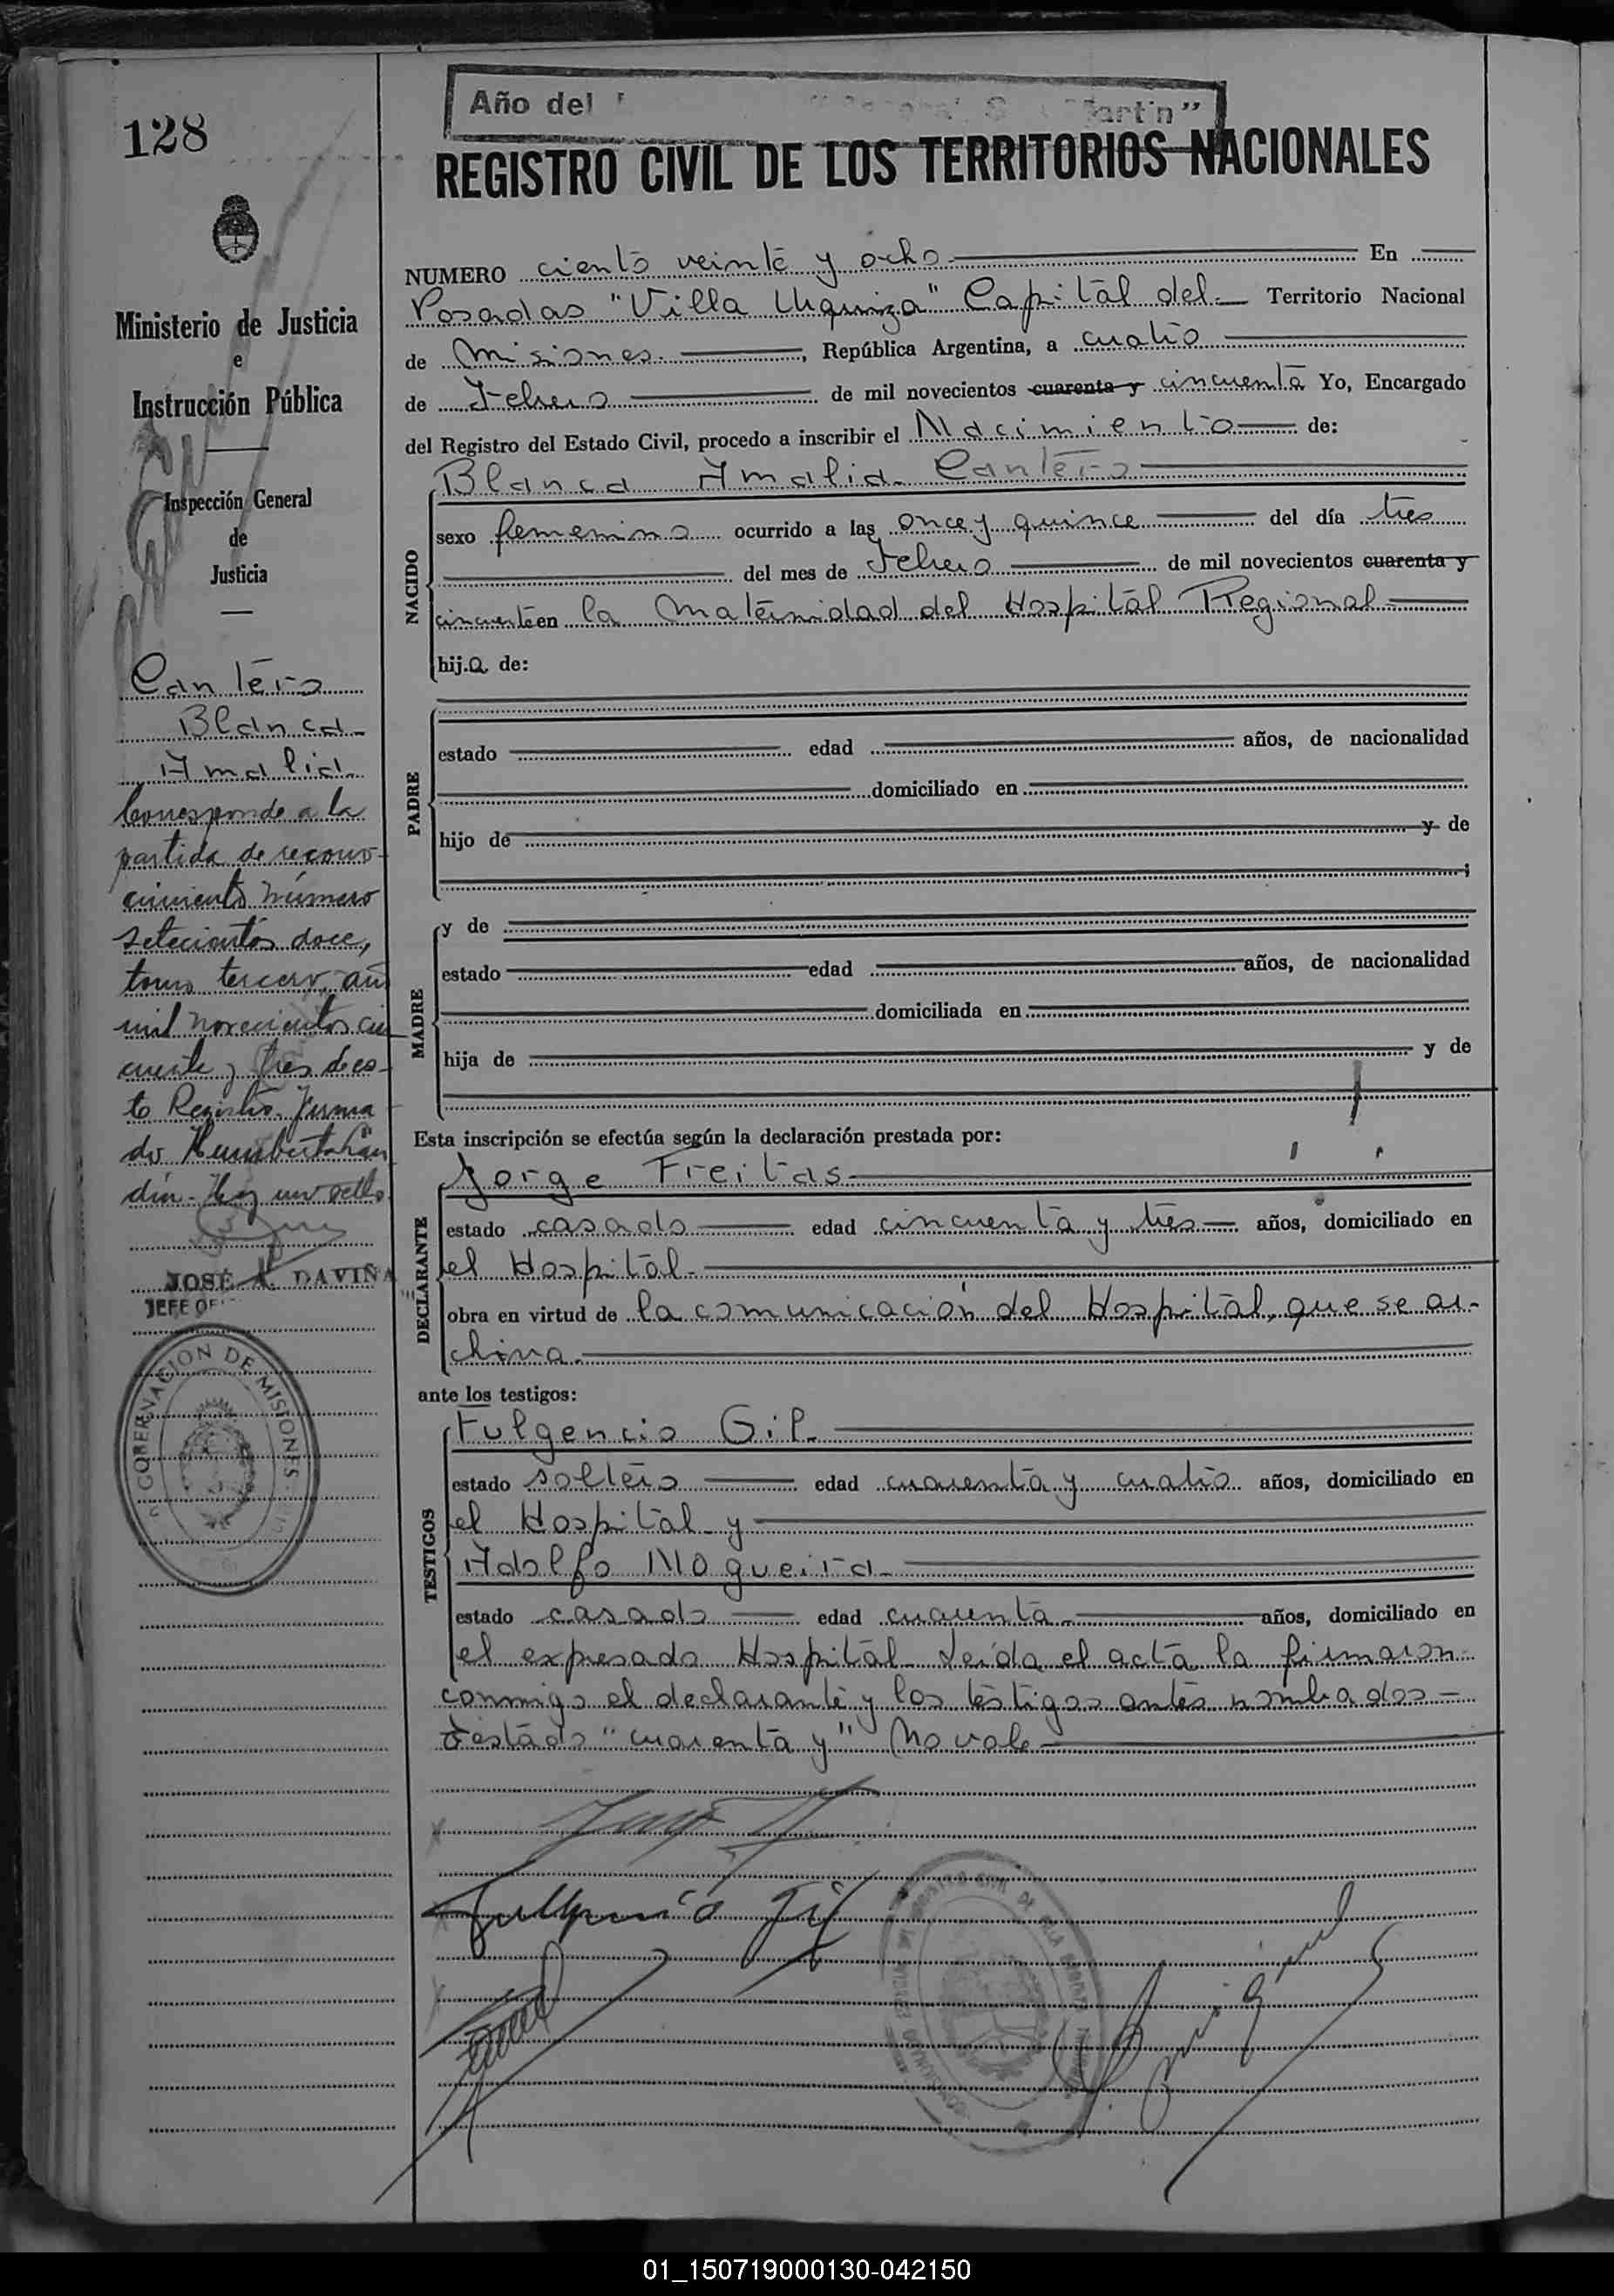 128
Año del " General S Martin"
REGISTRO CIVIL DE LOS TERRITORIOS NACIONALES
Ministerio de Justicia
e
Instrucción Pública
Inspección General
de
Justicia
Cantero
Blanca
Amalia
Corresponde a la
partida de recono-
cimiento número
setecientos doce,
tomo tercero, año
mil novecientos cin
cuenta y tres de es-
te Registro. Firma
do
Hay un sello
JOSÉ A. DAVIÑA
JEFE OF
GOBERNACION DE MISIONES
NUMERO ciento veinte y ocho En
Posadas "Villa Urquiza" Capital del Territorio Nacional
de Misiones. , República Argentina, a cuatro
de Febrero de mil novecientos cuarenta y cincuenta Yo, Encargado
del Registro del Estado Civil, procedo a inscribir el Nacimiento de:
NACIDO
Blanca Amalia Cantero
sexo femenino ocurrido a las once y quince del día tres
del mes de Febrero de mil novecientos cuarenta y
cincuenta en la Maternidad del Hospital Regional
hij.a de:
PADRE
estado edad años, de nacionalidad
domiciliado en
hijo de y de
;
MADRE
y de
estado edad años, de nacionalidad
domiciliada en
hija de y de
Esta inscripción se efectúa según la declaración prestada por:
DECLARANTE
Jorge Freitas
estado casado edad cincuenta y tres años, domiciliado en
el Hospital
obra en virtud de la comunicación del Hospital, que se ar-
chiva.
ante los testigos:
TESTIGOS
Fulgencio Gil
estado soltero edad cuarenta y cuatro años, domiciliado en
el Hospital y
Adolfo Nogueira
estado casado edad cuarenta años, domiciliado en
el expresado Hospital. Leída el acta la firmaron
conmigo el declarante y los testigos antes nombrados
Testado "cuarenta y" No vale
Fulgencio Gil
01_150719000130-042150